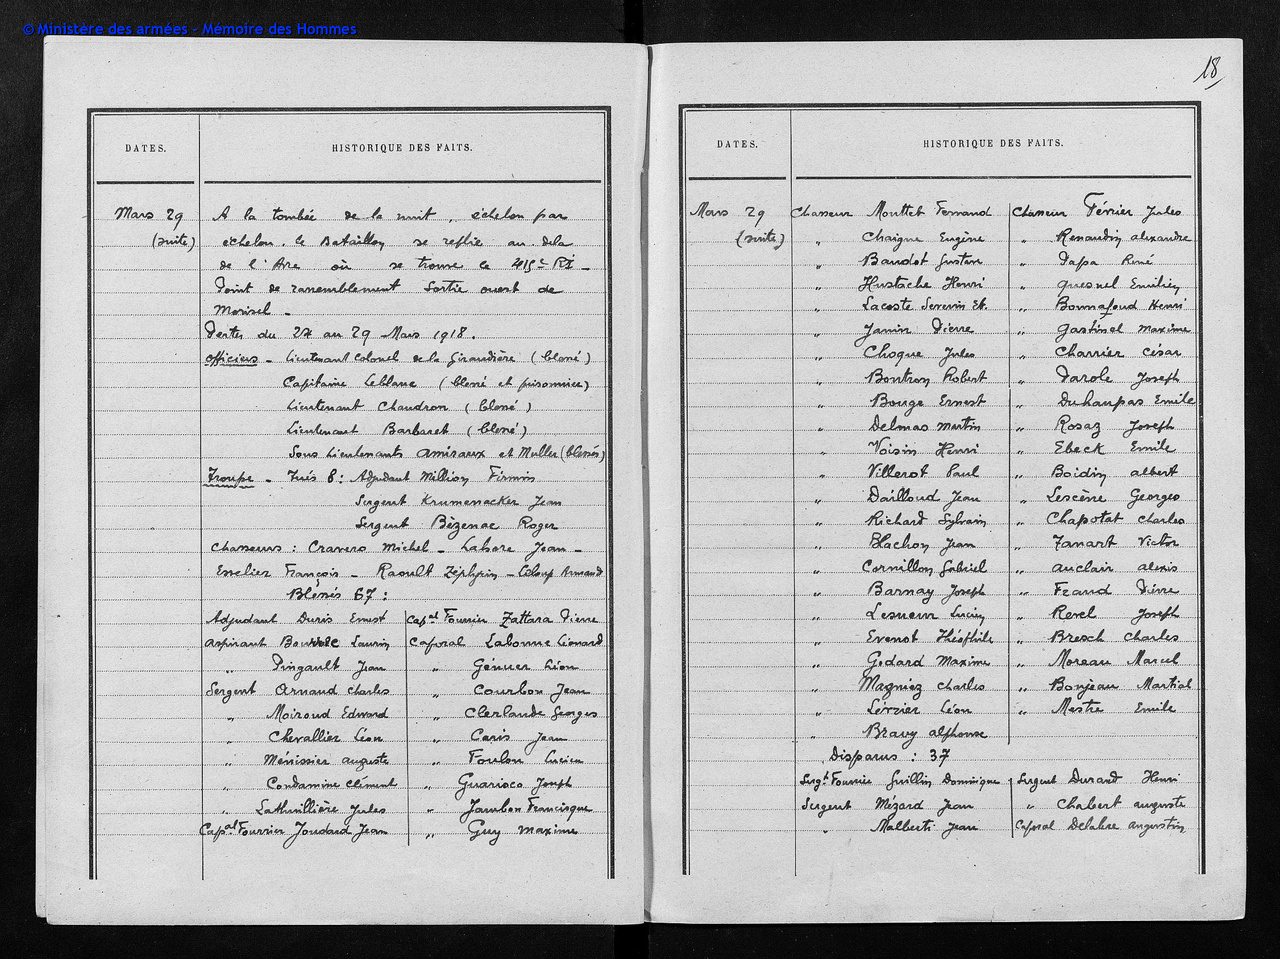 © Ministère des armées - Mémoire des Hommes
DATES.
HISTORIQUE DES FAITS.
Mars 29
(suite)
A la tombée de la nuit, échelon par
échelon, le Bataillon se replie au dela
de l'Avre où se trouve le 415e RI -
Point de rassemblement Sortie ouest de
Morisel -
Pertes du 27 au 29 Mars 1918.
Officiers - Lieutenant Colonel de la Giraudière (blessé)
Capitaine Leblanc (blessé et prisonnier)
Lieutenant Chaudron (blessé)
Lieutenant Barbaret (blessé)
Sous Lieutenants Amiraux et Muller (blessés)
Troupe - Tués 8 : Adjudant Million Firmin
Sergent Krumenacker Jean
Sergent Bézenac Roger
Chasseurs : Cravero Michel - Labore Jean -
Esselier François - Raoult Zéphyrin - Coloup Armand
Blessés 67 :
Adjudant Duris Ernest
Aspirant Laurin
" Pingault Jean
Sergent Arnaud Charles
" Moiroud Edward
" Chevallier Léon
" Ménissier Auguste
" Condamine Clément
" Lathuillière Jules
Capal Fourrier Joudard Jean
Capal Fourrier Zattara Pierre
Caporal Labonne Léonard
" Génuer Léon
" Courbon Jean
" Clerlande Georges
" Caris Jean
" Foulon Lucien
" Guarisco Joseph
" Jambon Francisque
" Guy Maxime
18
DATES.
HISTORIQUE DES FAITS.
Mars 29
(suite)
Chasseur Mouttet Fernand
" Chaigne Eugène
" Baudot Gustave
" Hustache Henri
" Lacoste Severin Et.
" Janin Pierre
" Choque Jules
" Bontron Robert
" Bouge Ernest
" Delmas Martin
" Voisin Henri
" Villerot Paul
" Dailloud Jean
" Richard Sylvain
" Blachon Jean
" Cornillon Gabriel
" Barnay Joseph
" Lesueur Lucien
" Evenot Théophile
" Godard Maxime
" Magniez Charles
" Lévrier Léon
" Bravy Alphonse
Chasseur Février Jules
" Renaudin Alexandre
" Papa René
" Quesnel Emilien
" Bonnafoud Henri
" Gastinel Maxime
" Charrier César
" Parole Joseph
" Duhaupas Emile
" Rosaz Joseph
" Ebeck Emile
" Boidin Albert
" Lescène Georges
" Chapotat Charles
" Zanart Victor
" Auclair Alexis
" Feaud Pierre
" Revel Joseph
" Bresch Charles
" Moreau Marcel
" Bonjeau Martial
" Mestre Emile
Disparus : 37
Sergt Fourrier Guillin Dominique
Sergent Mézard Jean
" Malberti Jean
Sergent Durand Henri
" Chabert Auguste
Caporal Delabre Augustin